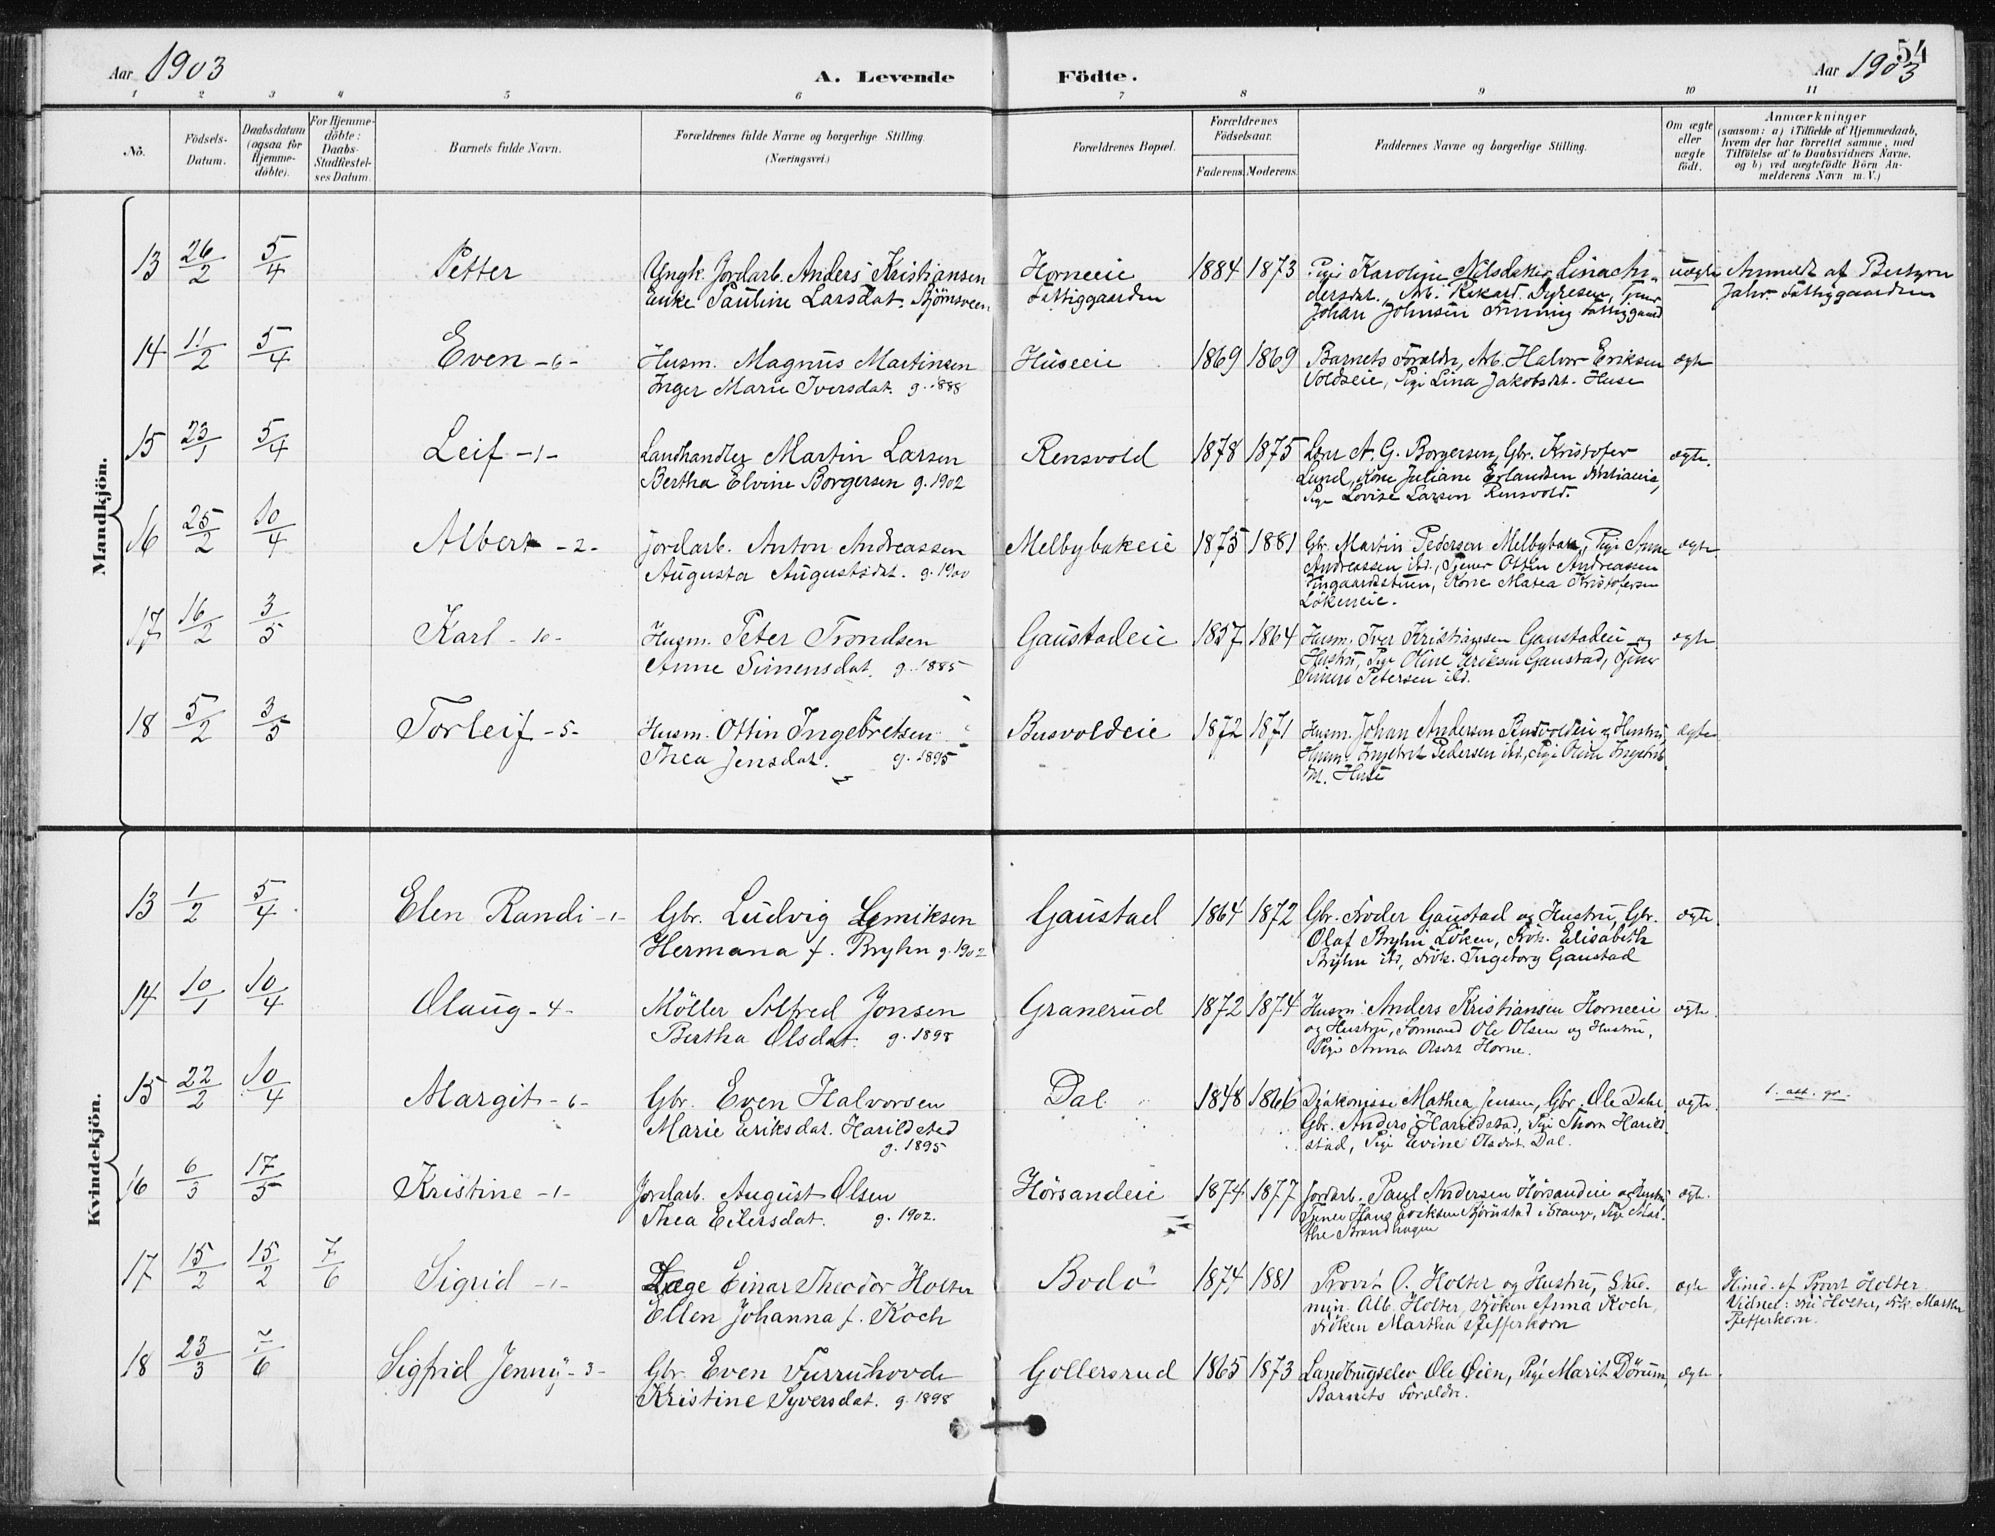 54
Aar 1903
A. Levende Födte.
Aar 1903
1 2 3 4 5 6 7 8 9 10 11
Nò.
Födsels-Datum.
Daabsdatum (ogsaa for Hjemme-döbte).
For Hjemme-döbte: Daabs-Stadfæstel-ses Datum.
Barnets fulde Navn.
Forældrenes fulde Navne og borgerlige Stilling.
(Næringsvei.)
Forældrenes Bopæl.
Forældrenes Födselsaar.
Faderens. Moderens.
Faddernes Navne og borgerlige Stilling.
Om ægte eller uægte födt.
Anmærkninger
(saasom: a) i Tilfælde af Hjemmedaab,
hvem der har forrettet samme, med
Tilföielse af to Daabsvidners Navne,
og b) ved uægtefödte Börn An-
melderens Navn m. V.)
Mandkjön.
13 26/2 5/4 Petter Ungk. Jordarb. Anders Kristiansen Horneeie 1884 1873 Pige Karoline Nilsdatter, Lina An- uægte Anmeldt af Bestyrer
Enke Pauline Larsdat. Bjørnsveen Fattiggaarden dersdat., Arb. Rikard Dyresen, Tjener Jahr. Fattiggaarden
Johan Johnsen Fattiggaard
14 11/2 5/4 Even - 6 - Husm. Magnus Martinsen Huseeie 1869 1869 Barnets Foraldre, Arb. Halvor Eriksen ægte
Inger Marie Iversdat. g. 1888 Voldseie, Pige Lina Jakobsdat. Huse
15 23/1 5/4 Leif - 1 - Landhandler Martin Larsen Rensvold 1878 1875 A. G. Borgersen, Gbr. Kristofer ægte.
Bertha Elvine Borgersen g. 1902 Lund, Kone Juliane Erlandsen Kristiania,
Pige Lovise Larsen Rensvold.
16 25/2 10/4 Albert - 2 - Jordarb. Anton Andreassen Melbybakeie 1875 1881 Gbr. Martin Pedersen Melbybak, Pige Anne ægte
Augusta Augustsdat. g. 1900 Andreassen ibd., Tjener Ottin Andreassen
Kone Matea Kristofersen
Løkeneie.
17 16/2 3/5 Karl - 10 - Husm. Peter Trondsen Gaustadeie 1857 1864 Husm. Iver Kristiansen Gaustadeie og ægte
Anne Simensdat. g. 1885 Hustru, Pige Oline Eriksen Gaustad, Tjener
Simen Petersen ibd.
18 5/2 3/5 Torleif - 5 - Husm. Ottin Ingebretsen Busvoldeie 1872 1871 Husm. Johan Andersen Busvoldeie og Hustru, ægte
Thea Jensdat. g. 1895 Husm. Ingebret Pedersen ibd., Pige Oline Ingebrets
M. Huse
Kvindekjön.
13 1/2 5/4 Elen Randi - 1 - Gbr. Ludvig Lemiksen Gaustad 1864 1872 Gbr. Peder Gaustad og Hustru, Gbr. ægte.
Hermana f. Bryhn g. 1902 Olaf Bryhn Löken, Frök. Elisabeth
Bryhn ibd, Frök. Ingeborg Gaustad
14 10/1 10/4 Olaug - 4 - Möller Alfred Jonsen Granerud 1872 1874 Husm. Anders Kristiansen Horneeie ægte.
Bertha Olsdat. g. 1898 og Hustru, Formand Ole Olsen og Hustru,
Pige Anna Olsdat Horne.
15 22/2 10/4 Margit - 6 - Gbr. Even Halvorsen Dal 1848 1866 Diakonisse Mathea Jensen, Gbr. Ole Dahl ægte.
Marie Eriksdat. Harildstad Gbr. Anders Harildstad, Pige Thora Harild-
g. 1895 stad, Pige Evine Olsdat Dal.
16 6/3 17/5 Kristine - 1 - Jordarb. August Olsen Hörsandeie 1874 1877 Jordarb. Paul Andersen Hörsandeie og Hustru, ægte.
Thea Eilersdat. g. 1902. Tjener Hans Eriksen Bjørnstad i Stange, Pige Mar-
the Strandhagen
17 15/2 15/2 7/6 Sigrid - 1 - Læge Einar Theodor Holter Bodö 1874 1881 Provst O. Holter og Hustru, Stud. ægte Hjmd. af Provst Holter
Ellen Johanna f. Koch min. Alb. Holter, Fröken Anna Koch, Vidner: Fru Holter, Frk. Martha
Fröken Martha Pfefferkorn Pfefferkorn.
18 23/3 7/6 Sigfrid Jenny - 3 - Gbr. Even Furruhovde Gollersrud 1865 1873 Landbrugselev Ole Öien, Pige Marit Dörum, ægte.
Kristine Syversdat. g. 1898 Barnets Foraldre.